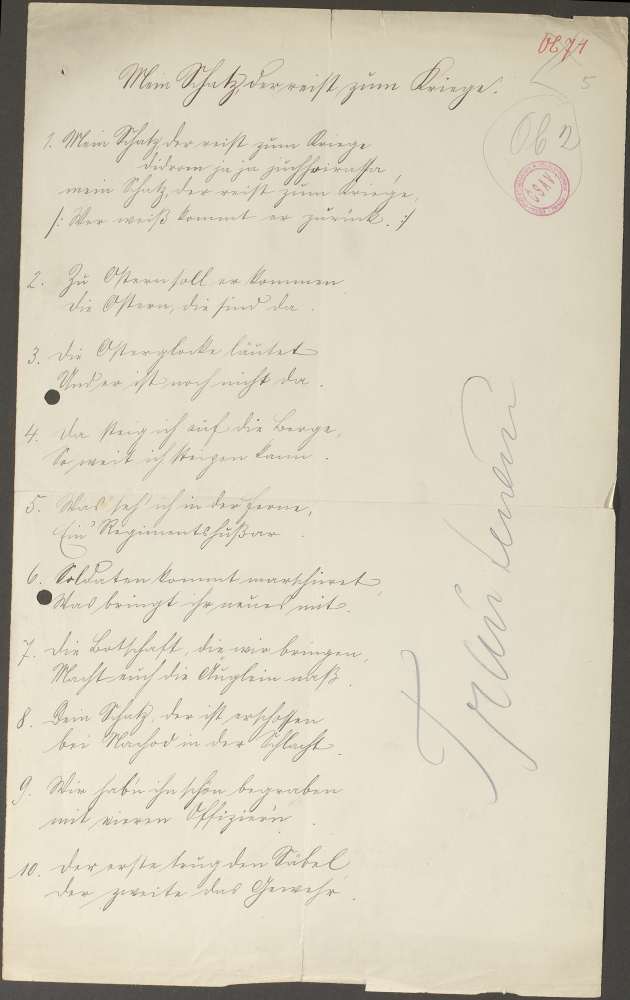 Ob 74
5
Ob 2
ČSAV
Mein Schatz, der reist zum Kriege.
1. Mein Schatz der reist zum Kriege
didrom ja ja juchheirassa,
mein Schatz, der reist zum Kriege,
/: Wer weiß kommt er zurück. :/
2. Zu Ostern soll er kommen
die Ostern, die sind da.
3. Die Osterglocke läutet
Und er ist noch nicht da.
4. Da steig ich auf die Berge,
So weit ich steigen kann.
5. Was seh' ich in der Ferne,
Ein Regimentshußar.
6. Soldaten kommt marschieret,
Was bringt ihr neues mit.
7. Die Botschaft, die wir bringen,
Macht euch die Äuglein naß.
8. Dein Schatz, der ist erschossen
bei Nachod in der Schlacht.
9. Wir hab'n ihn schön begraben
mit vieren Offiziern.
10. Der erste trug den Säbel
Der zweite das Gewehr.
Trautenau